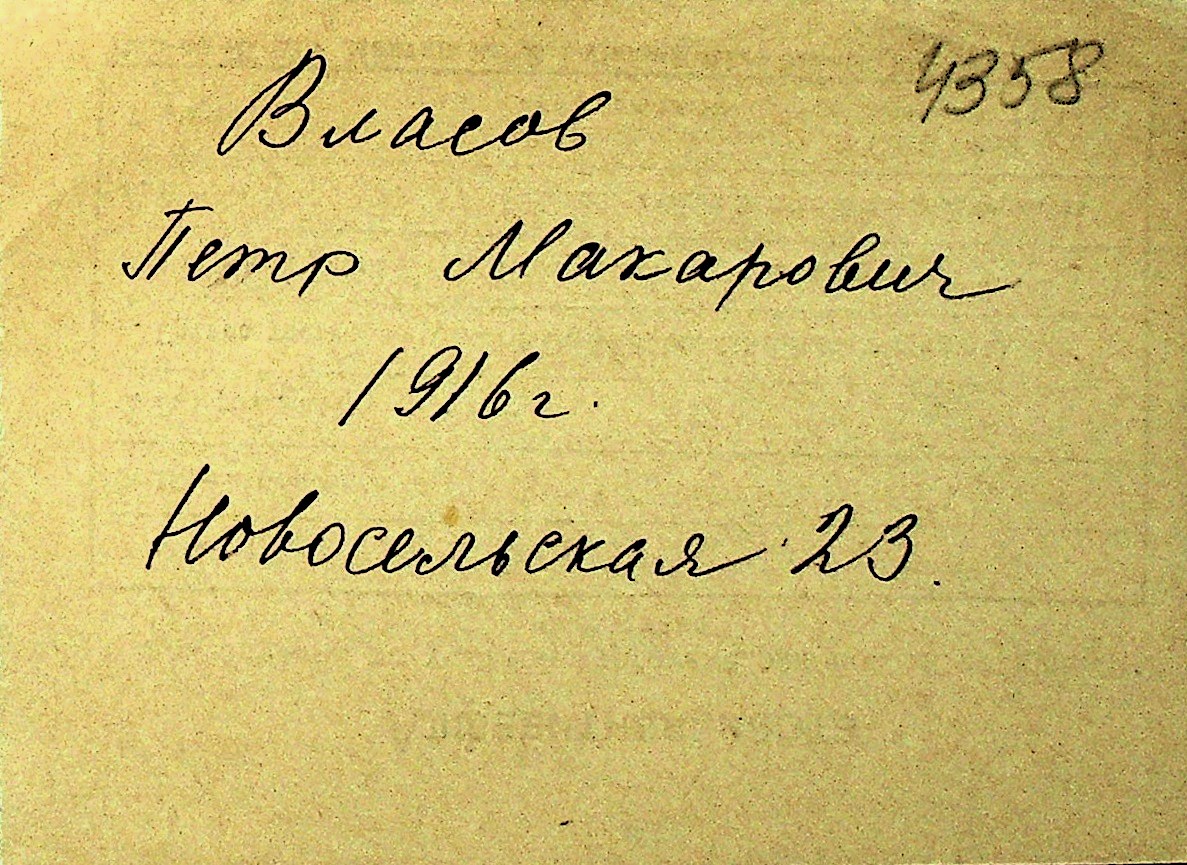 4358
Власов
Петр Макарович
1916г.
Новосельская 23.